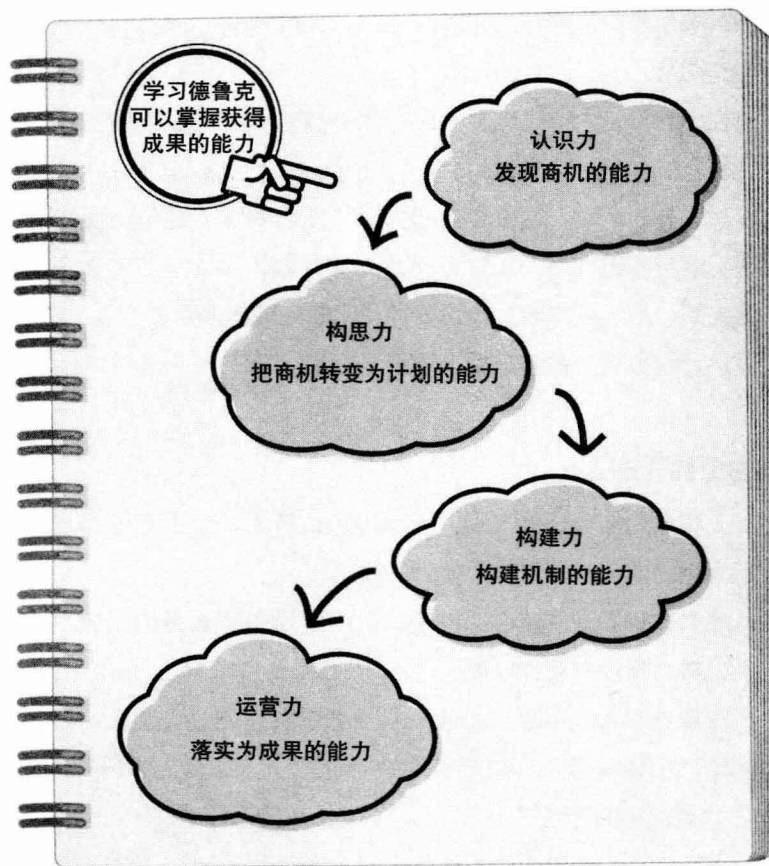 学习德鲁克
可以掌握获得
成果的能力
认识力
发现商机的能力
构思力
把商机转变为计划的能力
构建力
构建机制的能力
运营力
落实为成果的能力